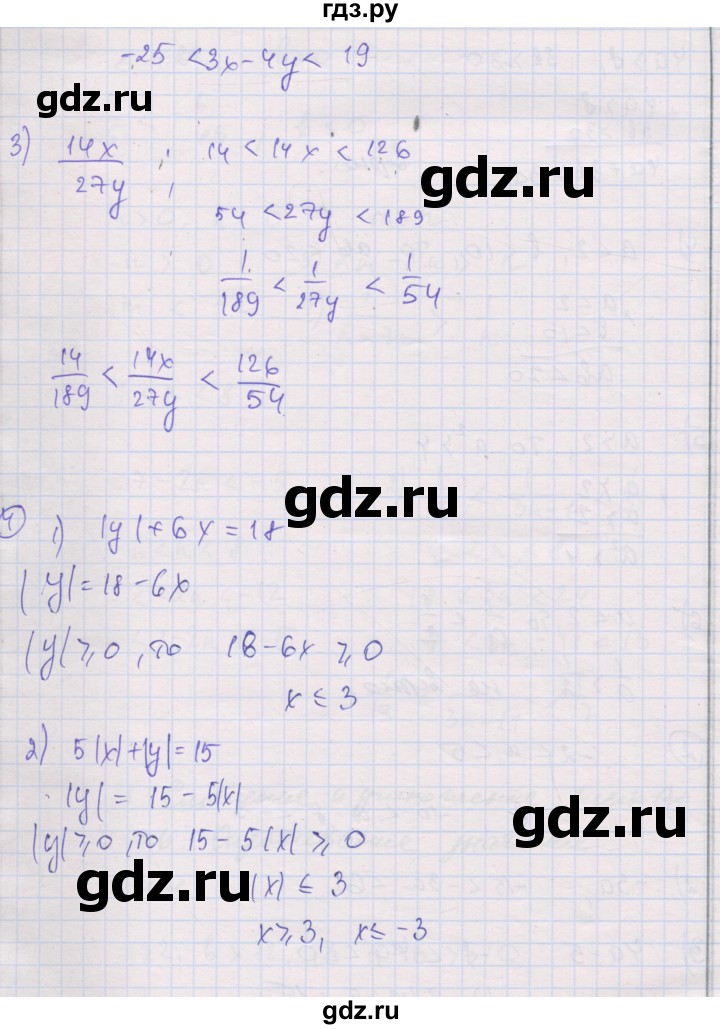 гдз.ру
-25 < 3x - 4y < 19
gdz.ru
3) 14x/27y ; 14 < 14x < 126
gdz.ru
54 < 27y < 189
1/189 < 1/27y < 1/54
gdz.ru
14/189 < 14x/27y < 126/54
gdz.ru
4) 1) |y| + 6x = 18
|y| = 18 - 6x
|y| ⩾ 0, то 18 - 6x ⩾ 0
gdz.ru
x ≤ 3
2) 5|x| + |y| = 15
|y| = 15 - 5|x|
gdz.ru
|y| ⩾ 0, то 15 - 5|x| ⩾ 0
gdz.ru
|x| ≤ 3
x ⩾ 3, x ≤ -3
gdz.ru